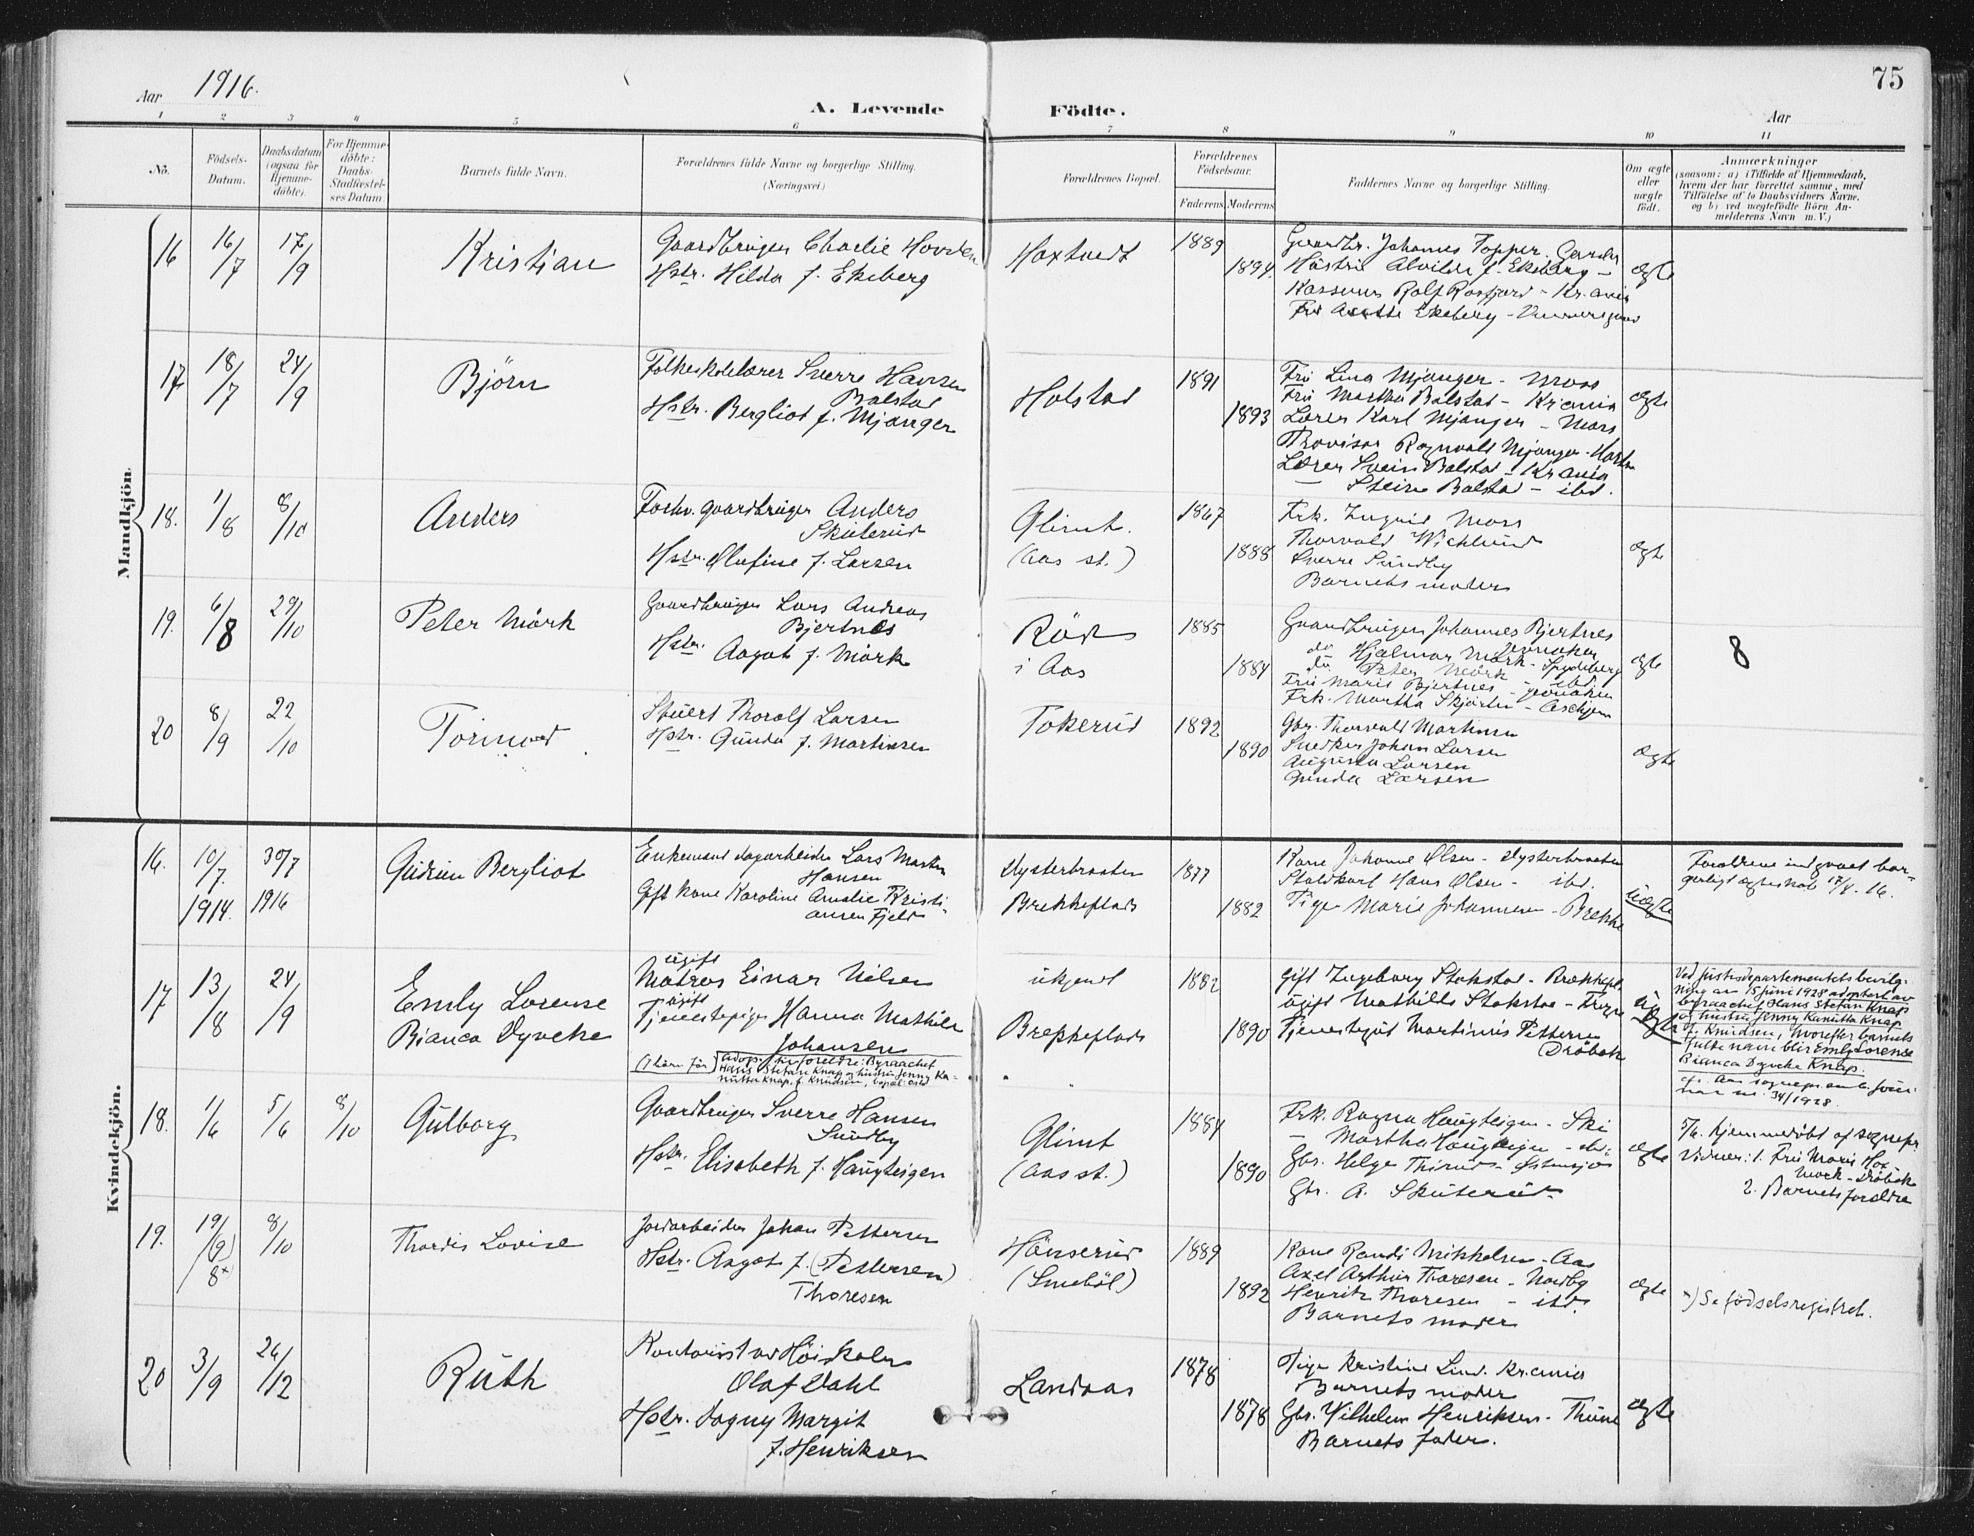 75
Aar 1916.
A. Levende Födte.
Aar
1 2 3 4 5 6 7 8 9 10 11
No.
Födsels-
Datum.
Daabsdatum
(ogsaa for
Hjemme-
döbte).
For Hjemme-
döbte:
Daabs-
Stadfæstel-
ses Datum
Barnets fulde Navn.
Forældrenes fulde Navne og borgerlige Stilling.
(Næringsvei)
Forældrenes Bopæl.
Forældrenes
Födselsaar.
Faderens Moderens
Faddernes Navne og borgerlige Stilling.
Om ægte
eller
uægte
födt.
Anmærkninger
(saasom: a) i Tilfælde af Hjemmedaab,
hvem der har forrettet samme, med
Tilföielse af to Daabsvidners Navne,
og b) ved uægtefödte Börn An-
melderens Navn m. V.)
Mandkjön.
16 16/7 17/9
Kristian
Gaardbruger Charlie Hovden
Hstr. Hilda f. Ekeberg
Haxtvedt
1889
1894
Gaardbr. Johannes Topper
Hustru Alvilde f. Ekeberg
Rolf Rosfjord - Kr.ania
Ekeberg
ægte
17 18/7 24/9
Björn
Folkeskolelærer Sverre Hansen
Balstad
Hstr. Bergliot f. Mjanger
Holstad
1891
1893
Fru Lina Mjanger - Moss
Fru Martha Balstad - Kr.ania
Lærer Karl Mjanger - Moss
Provisor Ragnvald Mjanger
Lærer Svein Balstad - Kr.ania
Steine Balstad - ibd.
ægte
18. 1/8 8/10
Anders
Forhv. gaardbruger Anders
Skuterud
Hstr. Olufine f. Larsen
Glimt.
(Aas st.)
1867
1888
Frk. Ingrid Moss
Thorvald Wichlund
Sverre Sundby
Barnets moder
ægte
19. 6/8 29/10
Peter Mörk
Gaardbruger Lars Andreas
Bjertnes
Hstr. Aagot f. Mörk
Röd
i Aas
1885
1884
Gaardbruger Johannes Bjertnes
do Hjalmar Mörk - Spydeberg
do Peter Mörk - ibd.
Fru Marie Bjertnes
Frk. Martha
ægte
8
20 8/9 22/10
Tormod
Stuert Thoralf Larsen
Hstr. Gunda f. Martinsen
Tokerud
1892
1890
Gbr. Thorvald Martinsen
Snedker Johan Larsen
Augusta Larsen
Gunda Larsen
ægte
Kvindekjön.
16. 10/7 1914. 30/7 1916
Gudrun Bergliot
Enkemand dagarbeider Lars Martin
Hansen
Gift kone Karoline Amalie Kristi-
ansen Fjeld
Dysterbraaten
Brekkeplads
1877
1882
Kone Johanne Olsen - Dysterbraaten
Staldkarl Hans Olsen - ibd.
Pige Marie Johannesen - Brekke
uægte
Forældrene indgaaet bor-
gerligt ægteskab 17/8. 16.
17 13/8 24/9
Emly Lorense
Bianca Dyveke
ugift
Matros Einar Nilsen
ugift
Tjenestepige Hanna Mathilde
Johansen
Adop. foreldre: Byraachef
Hans Stefan Knap og hustru Jenny Ka-
nutta Knap, f. Knudsen, bopæl: Oslo
ukjendt
Brekkeplads
1882
1890
Gift Ingeborg Stokstad - Brekkepl.
Ugift Mathilde Stokstad
Tjenestegut Martinius Pettersen
Dröbak
uægte
Ved justisdepartementets bevilg-
ning av 15 juni 1928 adoptert av
byraachef Hans Stefan Knap
og hustru Jenny Kanutta Knap
f. Knudsen, hvorefter barnets
fulde navn blir Emly Lorense
Bianca Dyveke Knap.
cfr. Aas sogneprestembedes jour-
nal nr. 34/1928.
18. 1/6 5/6 8/10
Gulborg
Gaardbruger Sverre Hansen
Sundby
Hstr. Elisabeth f. Haugteigen
Glimt
(Aas st.)
1884
1890
Frk. Ragna Haugteigen - Ski
Martha Haugteigen
Gbr. Helge Thirud - Östensjö
Gbr. A. Skuterud
ægte
5/6. hjemmedöbt af sognepr.
Vidner: 1. Fru Marie
Dröbak
2. Barnets forældre
19. 19/(9) 8x) 8/10
Thordis Lovise
Jordarbeider Johan Pettersen
Hstr. Aagot f. (Pettersen)
Thoresen
Hönserud
(Smeböl)
1889
1892
Kone Randi Mikkelsen - Aas
Axel Arthur Thoresen - Nordby
Henrik Thoresen - ibd.
Barnets moder
ægte
x) Se födselsregistret.
20 3/9 26/12
Ruth
Kontorist ved Höiskolen
Olaf Dahl
Hstr. Dagny Margit
f. Henriksen
Landaas
1878
1878
Pige Kristine Lind. Kr.ania
Barnets moder
Gbr. Wilhelm Henriksen - Thune
Barnets fader.
ægte